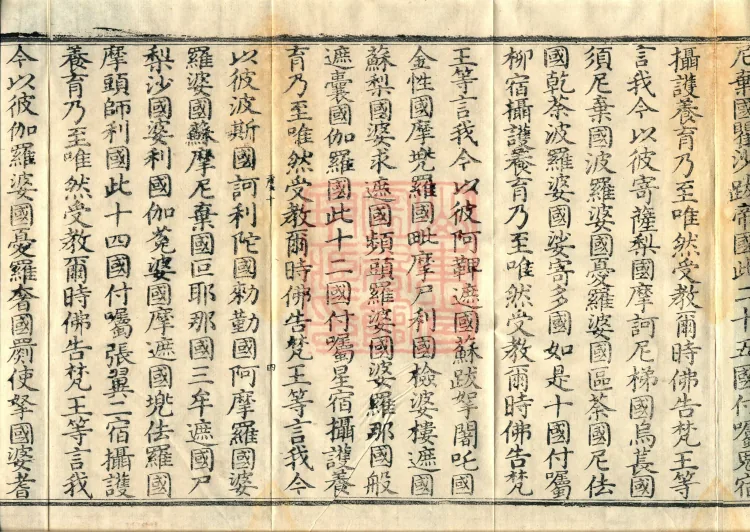 尼棄國賖沙跋帝國此二十五國付囑鬼宿
攝護養育乃至唯然受教爾時佛告梵王等
言我今以彼寄薩梨國摩訶尼梯國烏萇國
須尼棄國波羅婆國憂羅婆國區荼國尼佉
國乾荼波羅婆國娑寄多國如是十國付囑
柳宿攝護養育乃至唯然受教爾時佛告梵
王等言我今以彼阿鞞遮國蘇跋拏闇吒國
金性國摩兜羅國毗摩尸利國檢婆樓遮國
蘇梨國婆求遮國頻頭羅婆國婆羅那國般
遮囊國伽羅國此十二國付囑星宿攝護養
育乃至唯然受教爾時佛告梵王等言我今
四
以彼波斯國訶利陀國勑勤國阿摩羅國婆
羅婆國蘇摩尼棄國叵耶那國三牟遮國尸
梨沙國婆利國伽菟婆國摩遮國兜佉羅國
摩頭師利國此十四國付囑張翼二宿攝護
養育乃至唯然受教爾時佛告梵王等言我
今以彼伽羅婆國憂羅奢國罽使拏國婆耆